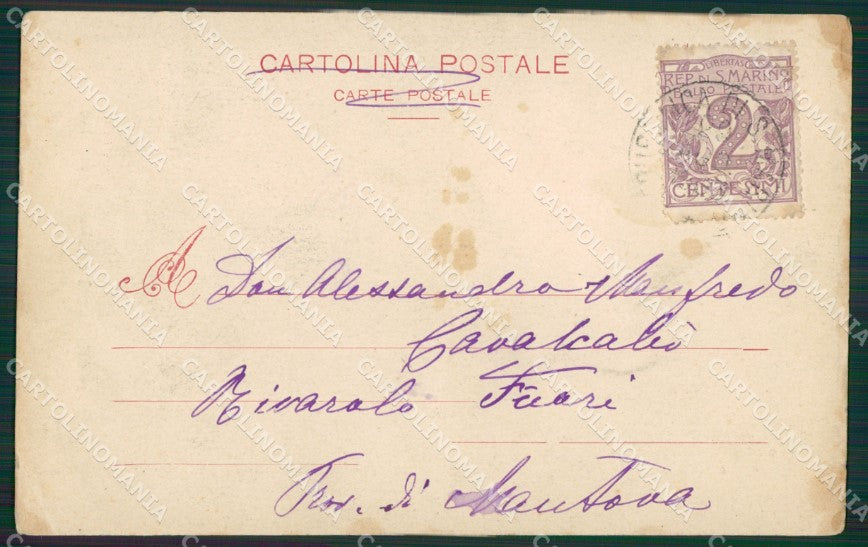 CARTOLINA POSTALE
CARTE POSTALE
LIBERTAS
REP. DI S. MARINO
BOLLO POSTALE
2
CENTESIMI
A Don Alessandro Manfredo
Cavalcabò
Rivarolo Fuori
Prov. di Mantova
CARTOLINOMANIA